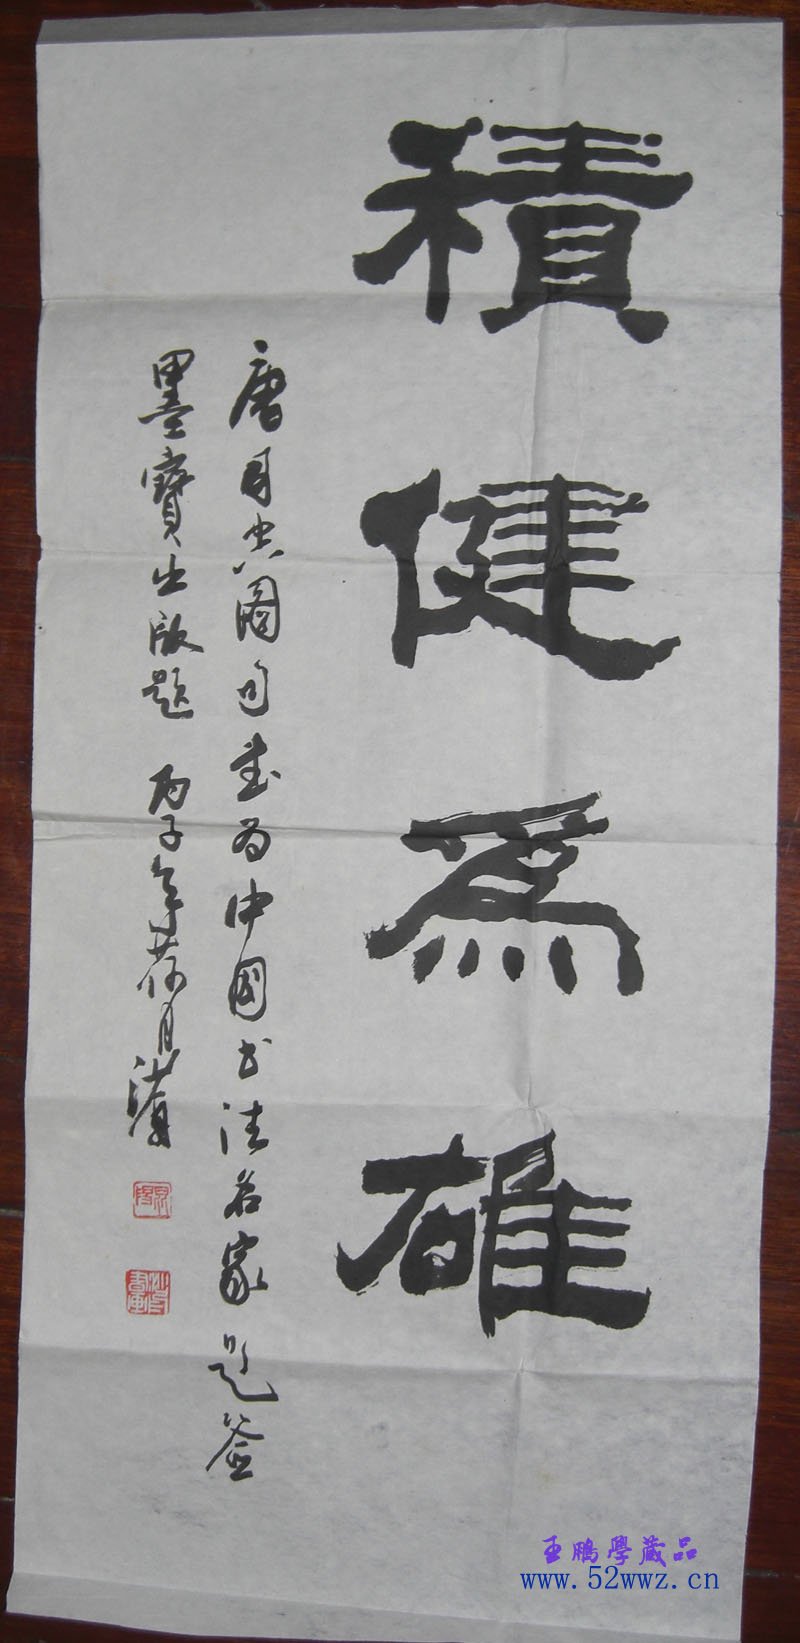 積健為雄
唐司空圖句書為中國書法名家題簽
墨寶出版題 丙子年荷月
王鵬學藏品
www.52wwz.cn